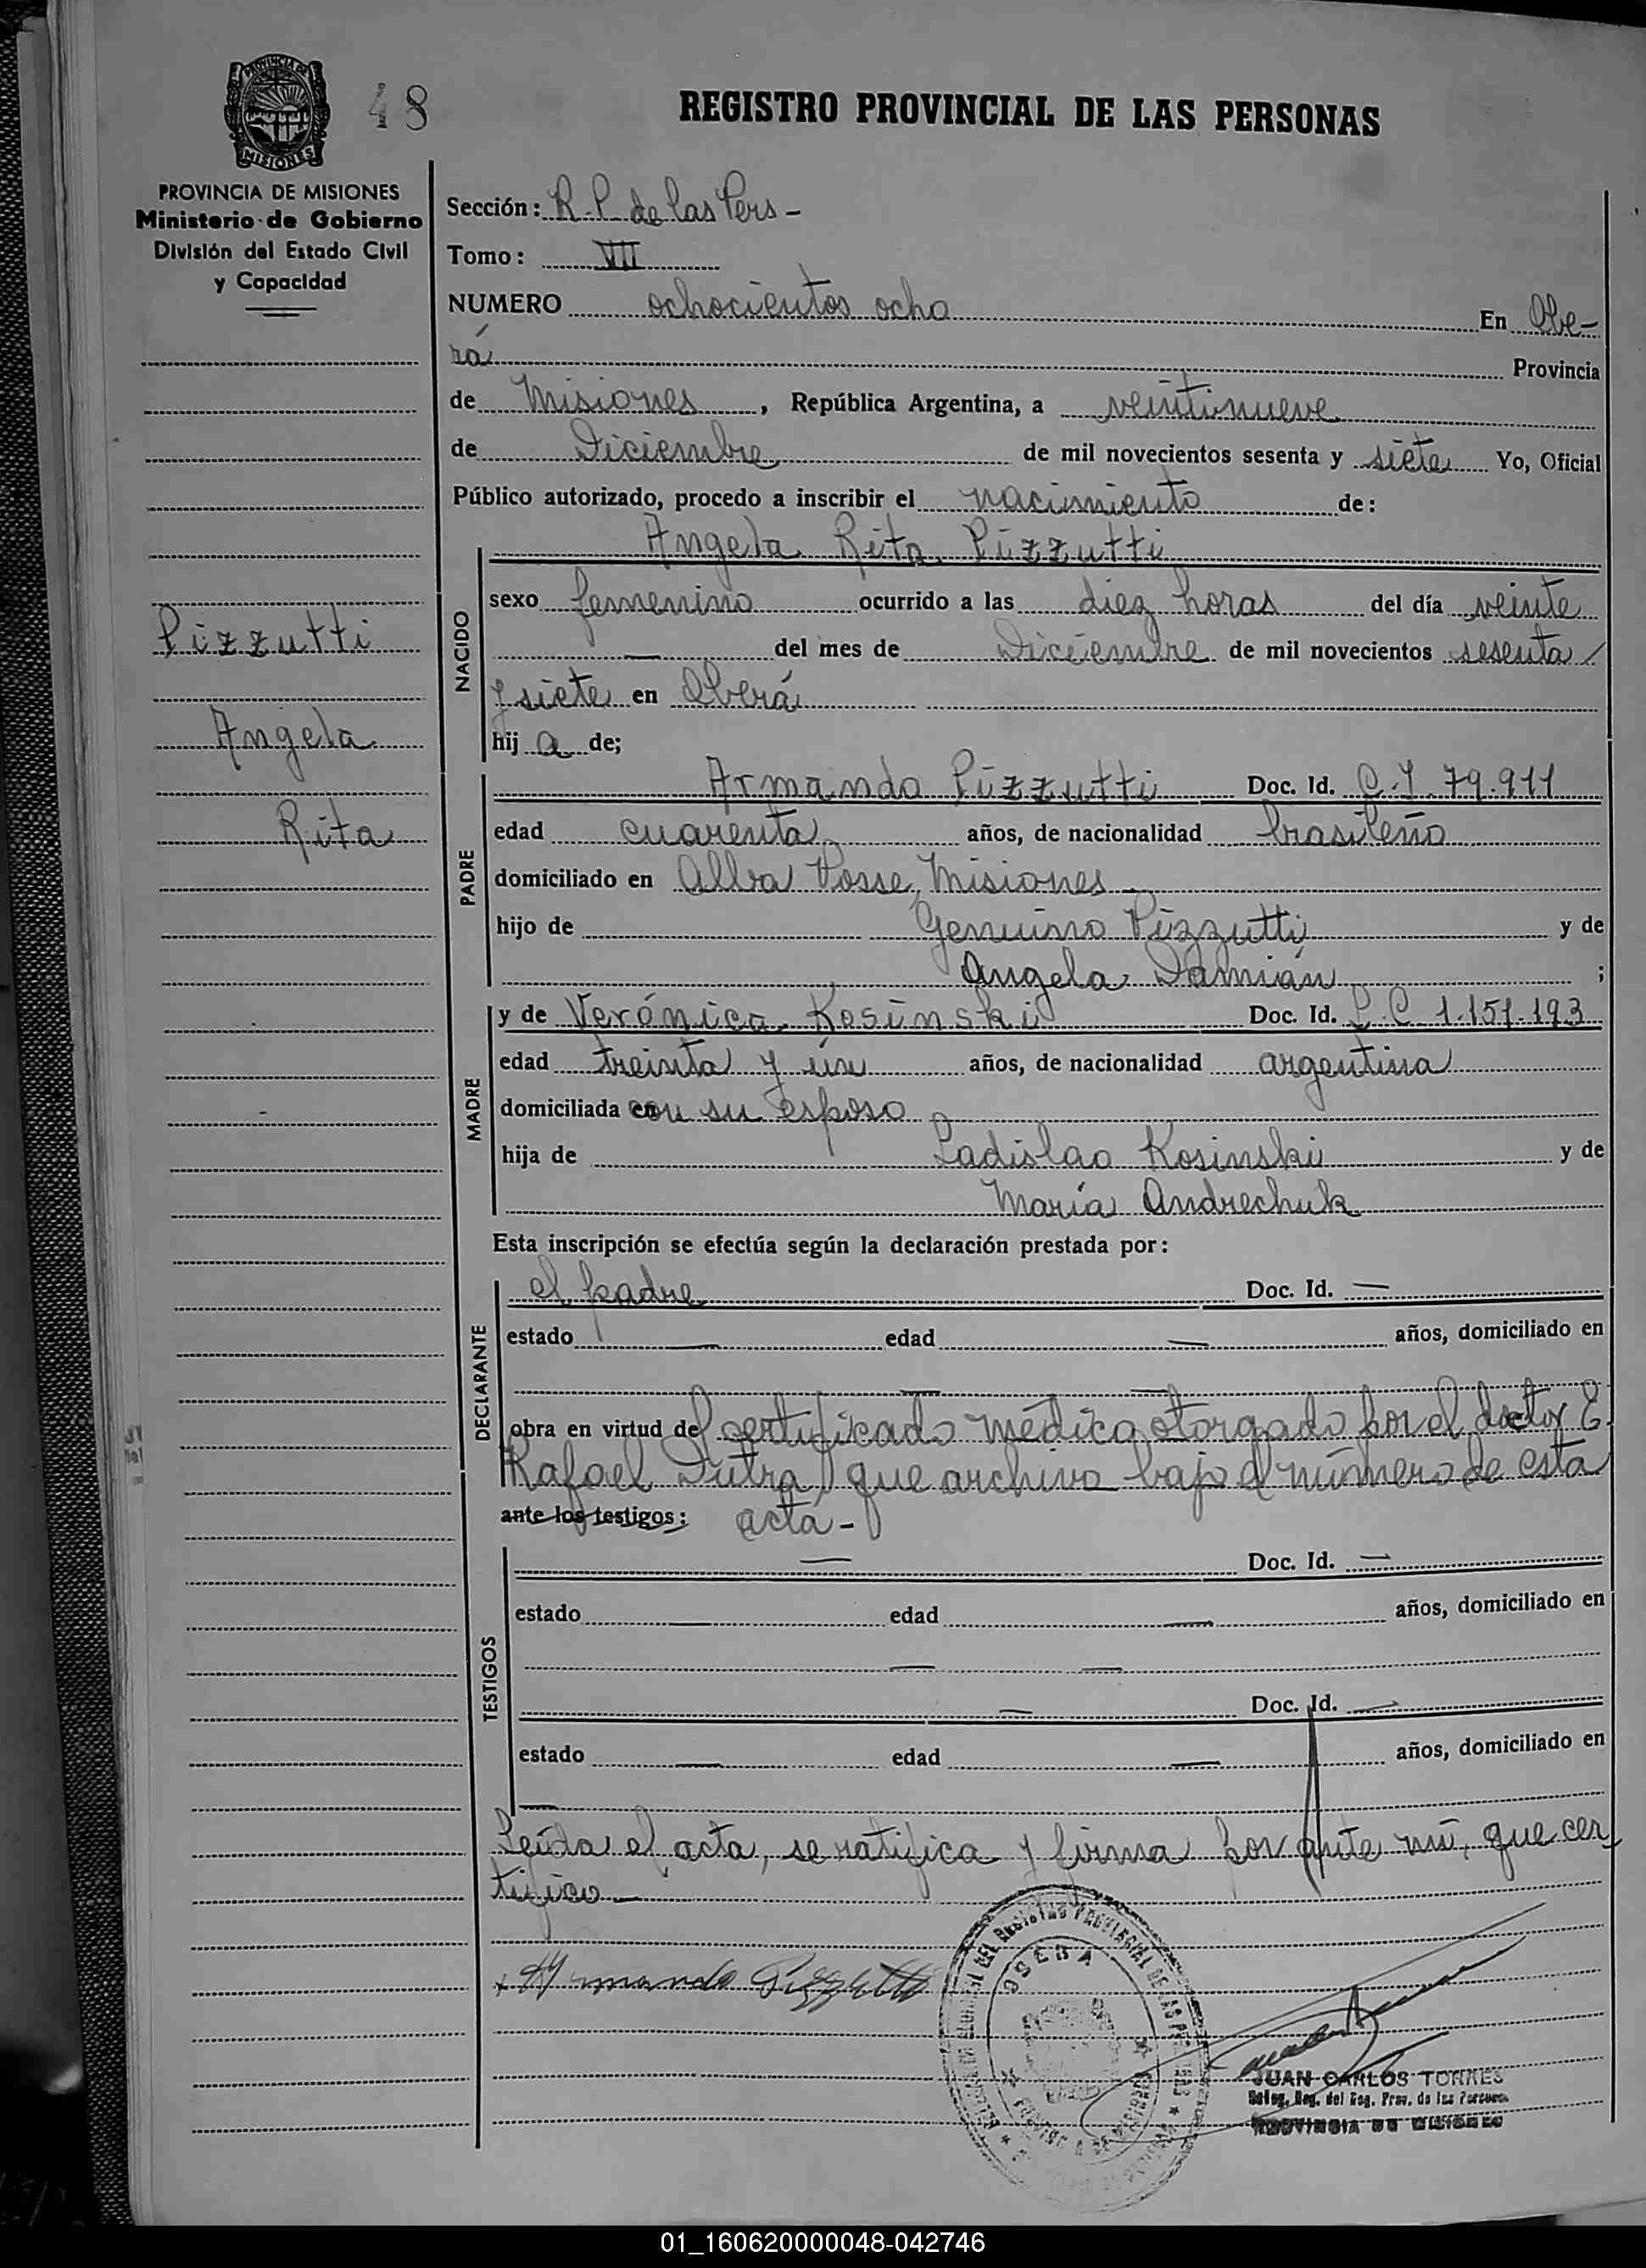 PROVINCIA DE
MISIONES
48
REGISTRO PROVINCIAL DE LAS PERSONAS
PROVINCIA DE MISIONES
Ministerio de Gobierno
División del Estado Civil
y Capacidad
Pizzutti
Angela
Rita
Sección: R. P. de las Pers -
Tomo: VII
NUMERO ochocientos ocho En Obe-
rá Provincia
de Misiones, República Argentina, a veintinueve
de Diciembre de mil novecientos sesenta y siete Yo, Oficial
Público autorizado, procedo a inscribir el nacimiento de:
NACIDO
Angela Rita Pizzutti
sexo femenino ocurrido a las diez horas del día veinte
— del mes de Diciembre de mil novecientos sesenta
y siete en Oberá
hij a de;
PADRE
Armando Pizzutti Doc. Id. C.I. 79.911
edad cuarenta años, de nacionalidad brasileño
domiciliado en Alba Posse, Misiones
hijo de Genuino Pizzutti y de
Angela Damián ;
MADRE
y de Verónica Kosinski Doc. Id. L.C 1.151.193
edad treinta y un años, de nacionalidad argentina
domiciliada con su esposo
hija de Ladislao Kosinski y de
María Andrechuk
Esta inscripción se efectúa según la declaración prestada por:
DECLARANTE
el padre Doc. Id. —
estado — edad — años, domiciliado en
— —
obra en virtud del certificado médico otorgado por el doctor E.
Rafael Dutra, que archivo bajo el número de esta
ante los testigos: acta -
TESTIGOS
— Doc. Id. —
estado — edad — años, domiciliado en
— —
— Doc. Id. —
estado — edad — años, domiciliado en
—
Leída el acta, se ratifica y firma por ante mí, que cer
tifico -
x Armando Pizzutti
JUAN CARLOS TORRES
Deleg. Reg. del Reg. Prov. de las Personas
PROVINCIA DE MISIONES
01_160620000048-042746